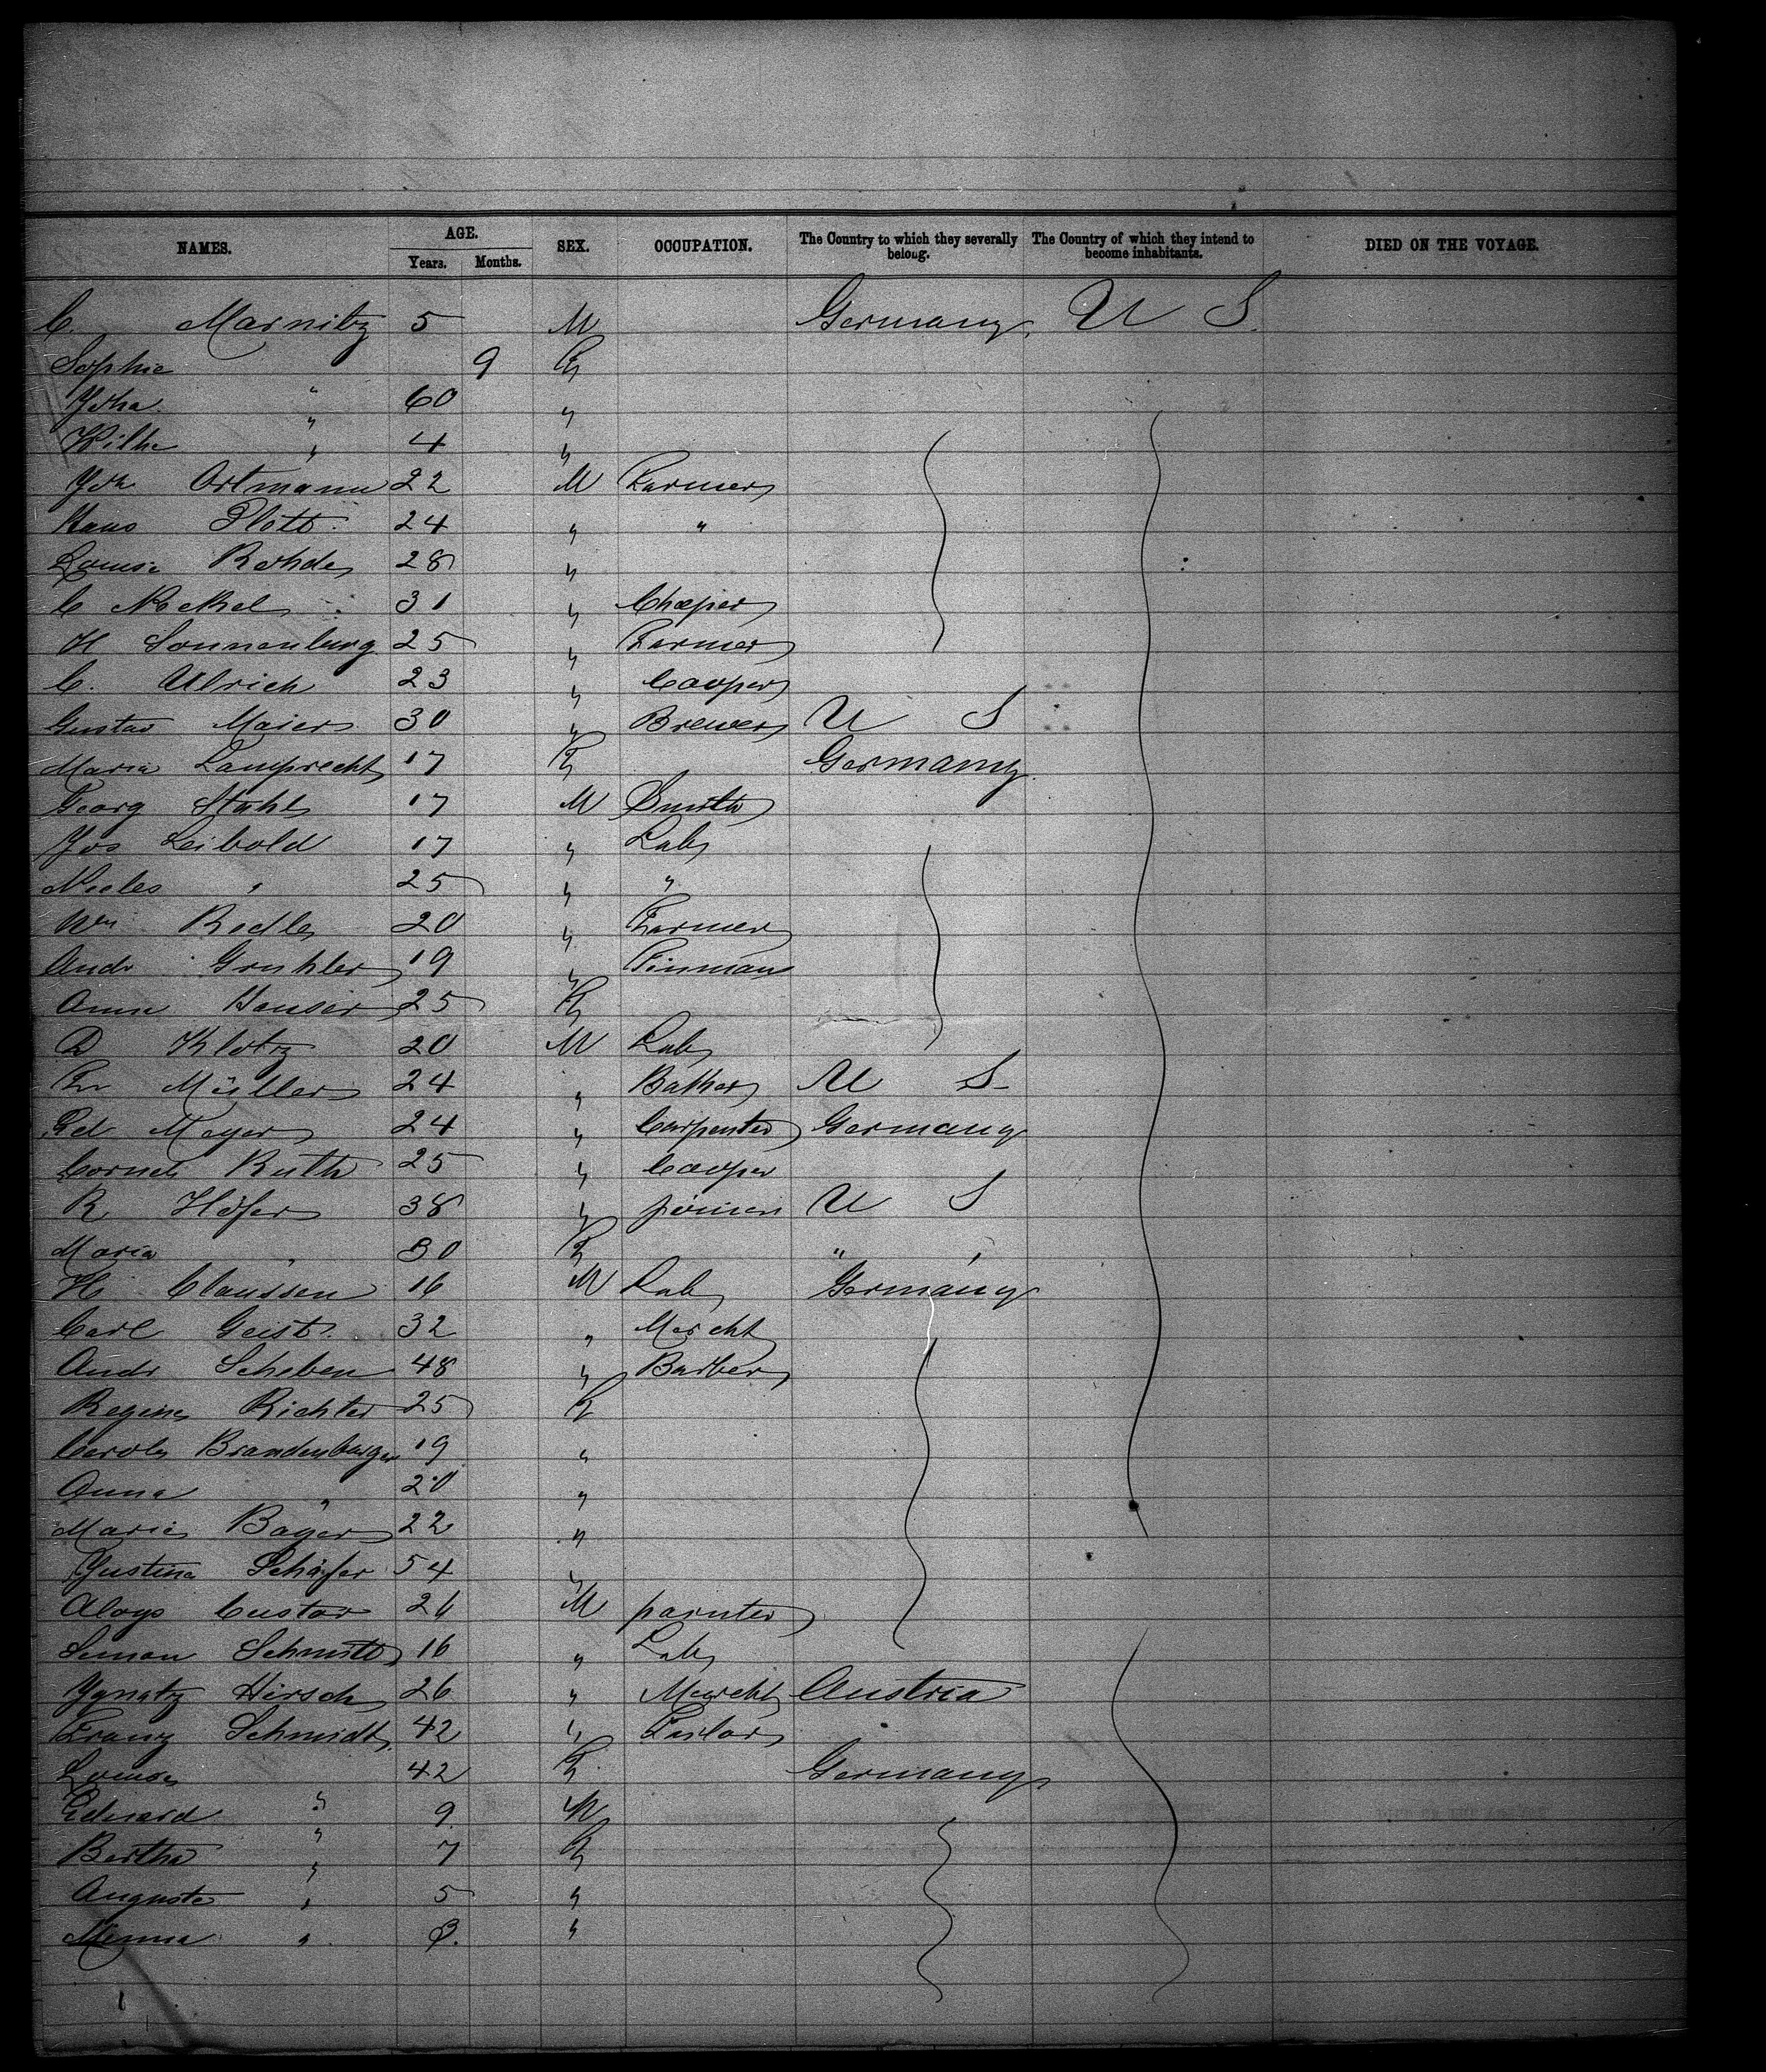 NAMES. AGE. Years. Months. SEX. OCCUPATION. The Country to which they severally belong. The Country of which they intend to become inhabitants. DIED ON THE VOYAGE.
C. Marnitz 5 M Germany U S.
Sophie 9 F
Joha " 60 "
Wilhe " 4 "
Joh Ortmann 22 M Farmer
Hans Plott 24 " "
Louise Rohde 28 "
C 31 "
H Sonnenburg 25 " Farmer
C. Ulrich 23 " Cooper
Gustav Maier 30 " Brewer U S
Maria Lamprecht 17 F Germany
Georg Stahl 17 M Smith
Jos Leibold 17 " Lab
" 25 " "
Wm Redle 20 " Farmer
Andr Gruhler 19 " Tinman
Anna Hauser 25 F
D Klotz 20 M Lab
Fr Müller 24 " U S
Meyer 24 " Carpenter Germany
Cornel Ruth 25 " Cooper
R Höfer 38 " U S
Maria " 30 F " "
H Claussen 16 M Lab Germany
Carl Geist 32 " Mercht
Andr Scheben 48 " Barber
Regine Richter 25 F
Carol Brandenburger 19 "
Anna " 20 "
Marie Bayer 22 "
Justina Schäfer 54 "
Aloys Custor M painter
Simon Schmitt 16 " Lab
Ygnatz Hirsch 26 " Mercht Austria
Franz Schmidt 42 " Tailor
Louise " 42 F Germany
Eduard " 9 M
Bertha " 7 F
Auguste " 5 "
Minna " "